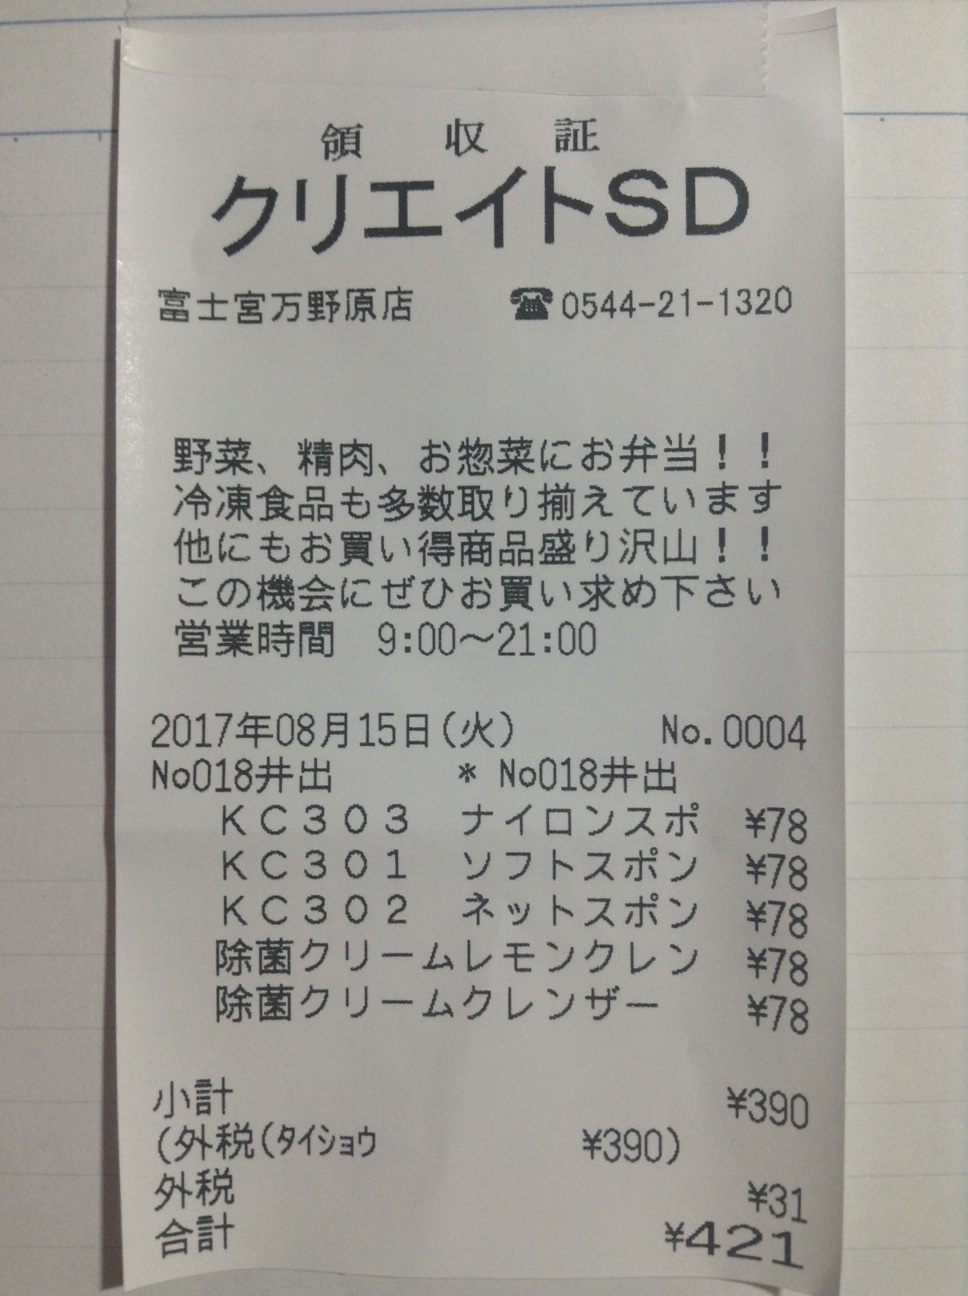 領 収 証
クリエイトSD
富士宮万野原店 ☎0544-21-1320
野菜、精肉、お惣菜にお弁当！！
冷凍食品も多数取り揃えています
他にもお買い得商品盛り沢山！！
この機会にぜひお買い求め下さい
営業時間 9:00～21:00
2017年08月15日(火) No.0004
No018井出 * No018井出
ＫＣ３０３ ナイロンスポ ¥78
ＫＣ３０１ ソフトスポン ¥78
ＫＣ３０２ ネットスポン ¥78
除菌クリームレモンクレン ¥78
除菌クリームクレンザー ¥78
小計 ¥390
(外税(ﾀｲｼｮｳ ¥390)
外税 ¥31
合計 ¥421